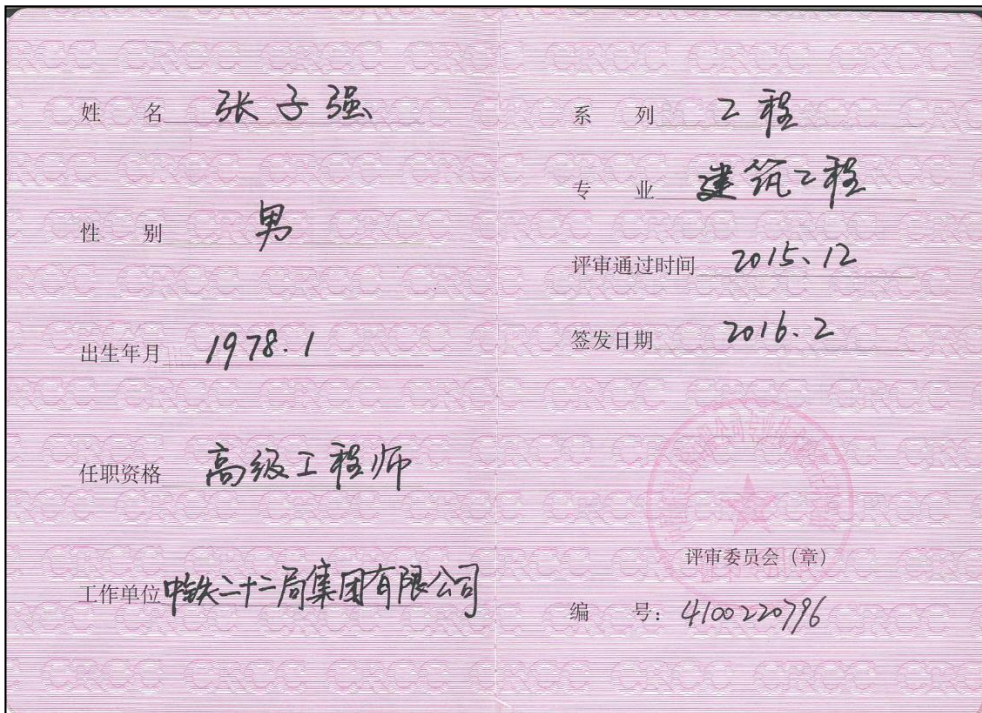 姓 名 张子强
性 别 男
出生年月 1978.1
任职资格 高级工程师
工作单位 中铁二十二局集团有限公司
系 列 工程
专 业 建筑工程
评审通过时间 2015、12
签发日期 2016.2
评审委员会（章）
编 号：4100220796